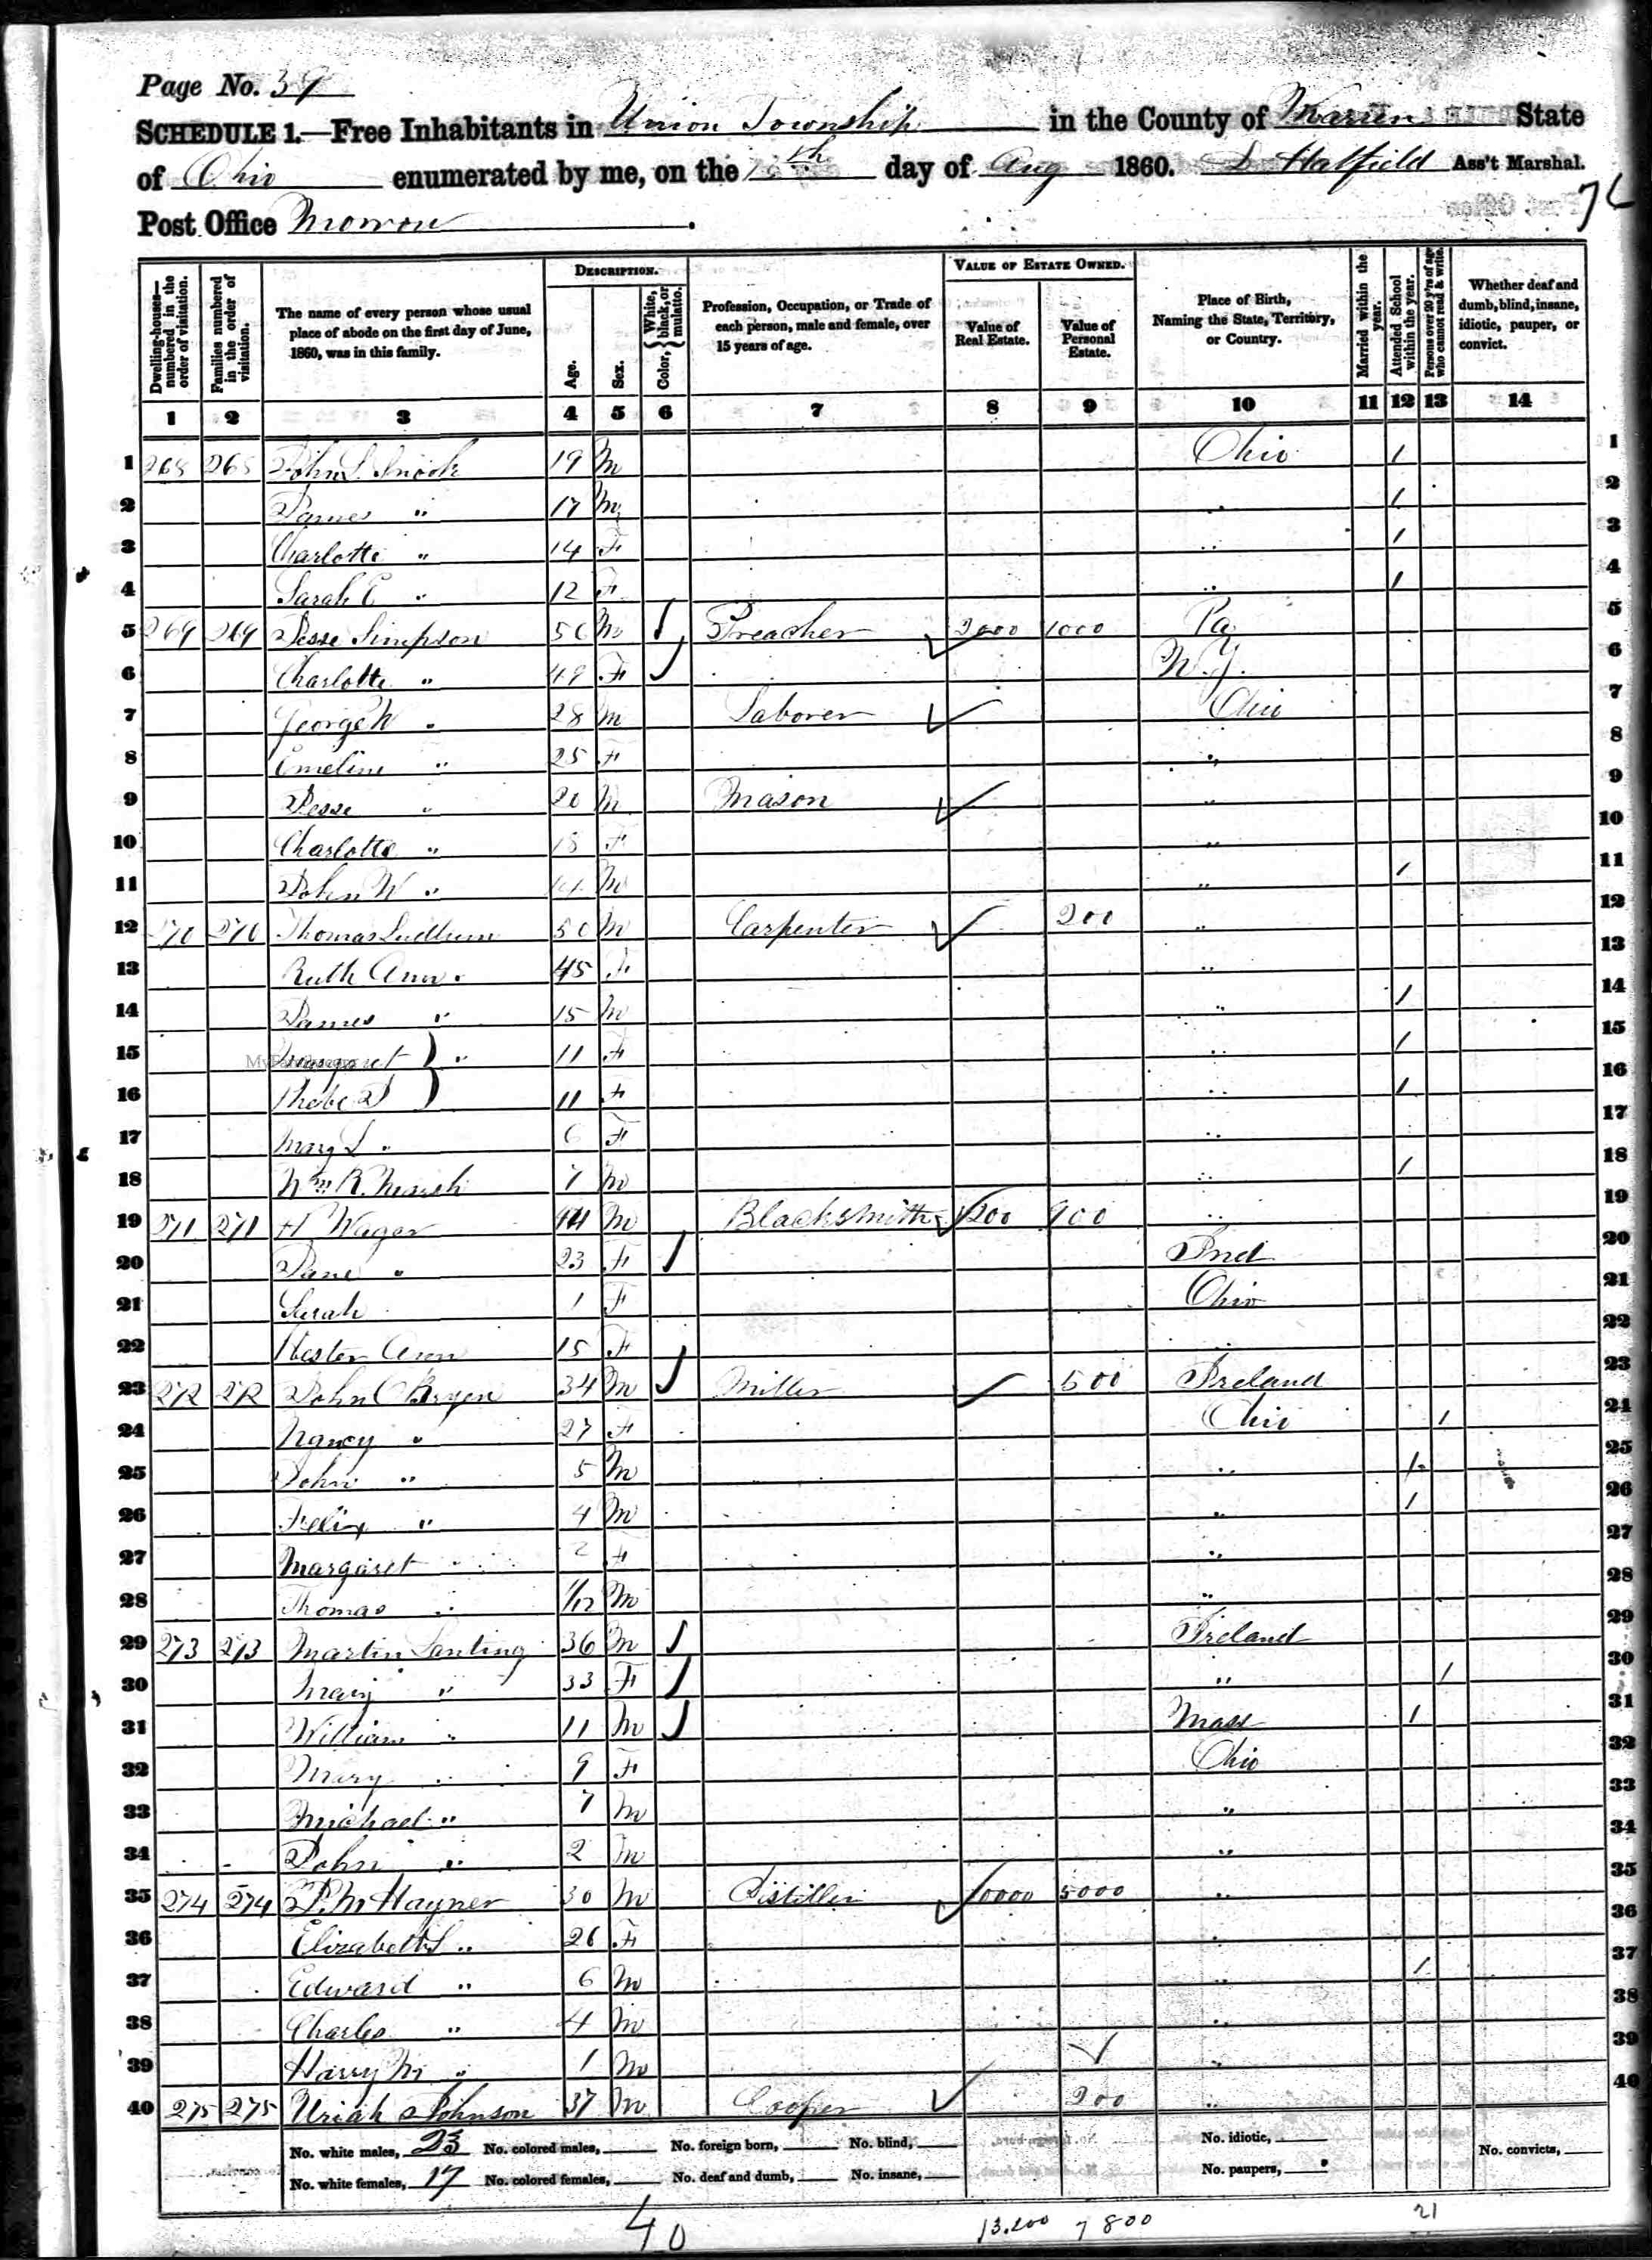 Page No. 39
SCHEDULE 1.—Free Inhabitants in Union Township in the County of Warren State
of Ohio enumerated by me, on the th day of Aug 1860. D Hatfield Ass't Marshal.
Post Office Morrow.
DESCRIPTION. VALUE OF ESTATE OWNED.
Dwelling-houses—numbered in the order of visitation. Families numbered in the order of visitation. The name of every person whose usual place of abode on the first day of June, 1860, was in this family. Age. Sex. Color, White, black, or mulatto. Profession, Occupation, or Trade of each person, male and female, over 15 years of age. Value of Real Estate. Value of Personal Estate. Place of Birth, Naming the State, Territory, or Country. Married within the year. Attended School within the year. Persons over 20 y'rs of age who cannot read & write. Whether deaf and dumb, blind, insane, idiotic, pauper, or convict.
1 2 3 4 5 6 7 8 9 10 11 12 13 14
1 268 268 John L. Snook 19 M Ohio / 1
2 James " 17 M " / 2
3 Charlotte " 14 F " / 3
4 Sarah E " 12 F " / 4
5 269 269 Jesse Simpson 50 M Preacher 2000 1000 Pa 5
6 Charlotte " 49 F N.J. 6
7 George W " 28 M Laborer Ohio 7
8 Emeline " 25 F " 8
9 Jesse " 20 M Mason " 9
10 Charlotte " 18 F " 10
11 John W " 14 M " / 11
12 270 270 Thomas Ludlum 50 M Carpenter 200 " 12
13 Ruth Ann " 45 F " 13
14 James " 15 M " / 14
15 Margaret } " 11 F " / 15
16 Phebe J } 11 F " / 16
17 Mary L " 6 F " 17
18 Wm R. Marsh 7 M " / 18
19 271 271 H Wager 44 M Blacksmith 1200 900 " 19
20 Jane " 23 F Ind 20
21 Sarah 1 F Ohio 21
22 Hester Ann 15 F " 22
23 272 272 John O Bryen 34 M Miller 500 Ireland 23
24 Nancy " 27 F Ohio / 24
25 John " 5 M " / 25
26 Felix " 4 M " / 26
27 Margaret " 2 F " 27
28 Thomas " 1/12 M " 28
29 273 273 Martin Lanting 36 M Ireland 29
30 Mary " 33 F " / 30
31 William " 11 M Mass / 31
32 Mary " 9 F Ohio 32
33 Michael " 7 M " 33
34 John " 2 M " 34
35 274 274 L. M Hayner 30 M Distiller 10000 5000 " 35
36 Elizabeth L " 26 F " 36
37 Edward " 6 M " / 37
38 Charles " 4 M " 38
39 Harry M " 1 M " 39
40 275 275 Uriah Johnson 37 M Cooper 200 " 40
No. white males, 23 No. colored males, No. foreign born, No. blind, No. idiotic, No. convicts,
No. white females, 17 No. colored females, No. deaf and dumb, No. insane, No. paupers,
40 13,200 7800 21